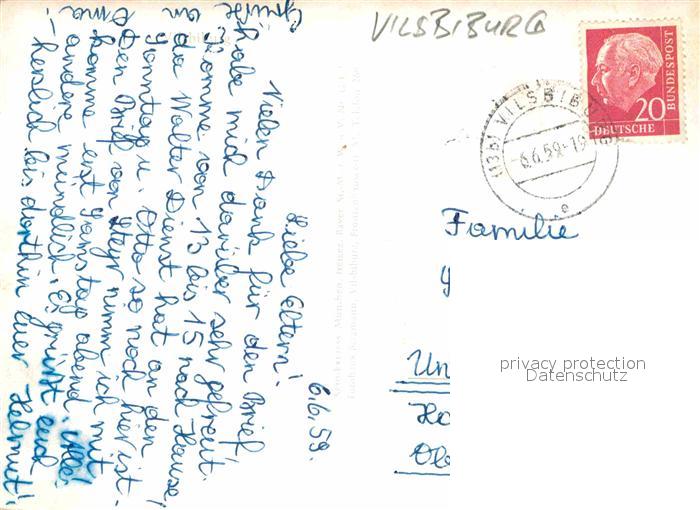 VILSBIBURG
20
DEUTSCHE
BUNDESPOST
(13b) VILSBIBURG
-6.6.59-19
e
6.6.59.
Liebe Eltern!
Vielen Dank für den Brief,
habe mich darüber sehr gefreut.
Komme von 13 bis 15 nach Hause!
da Walter Dienst hat an den
Sonntag u. Otto so noch hier ist.
Den Brief von Steyr nimm ich mit
komme erst Samstag abend. Alles
andere mündlich. Es grüßt euch
herzlich bis dorthin euer Helmut!
Grüße an Oma!
Familie
Un
Ha
Obe
privacy protection
Datenschutz